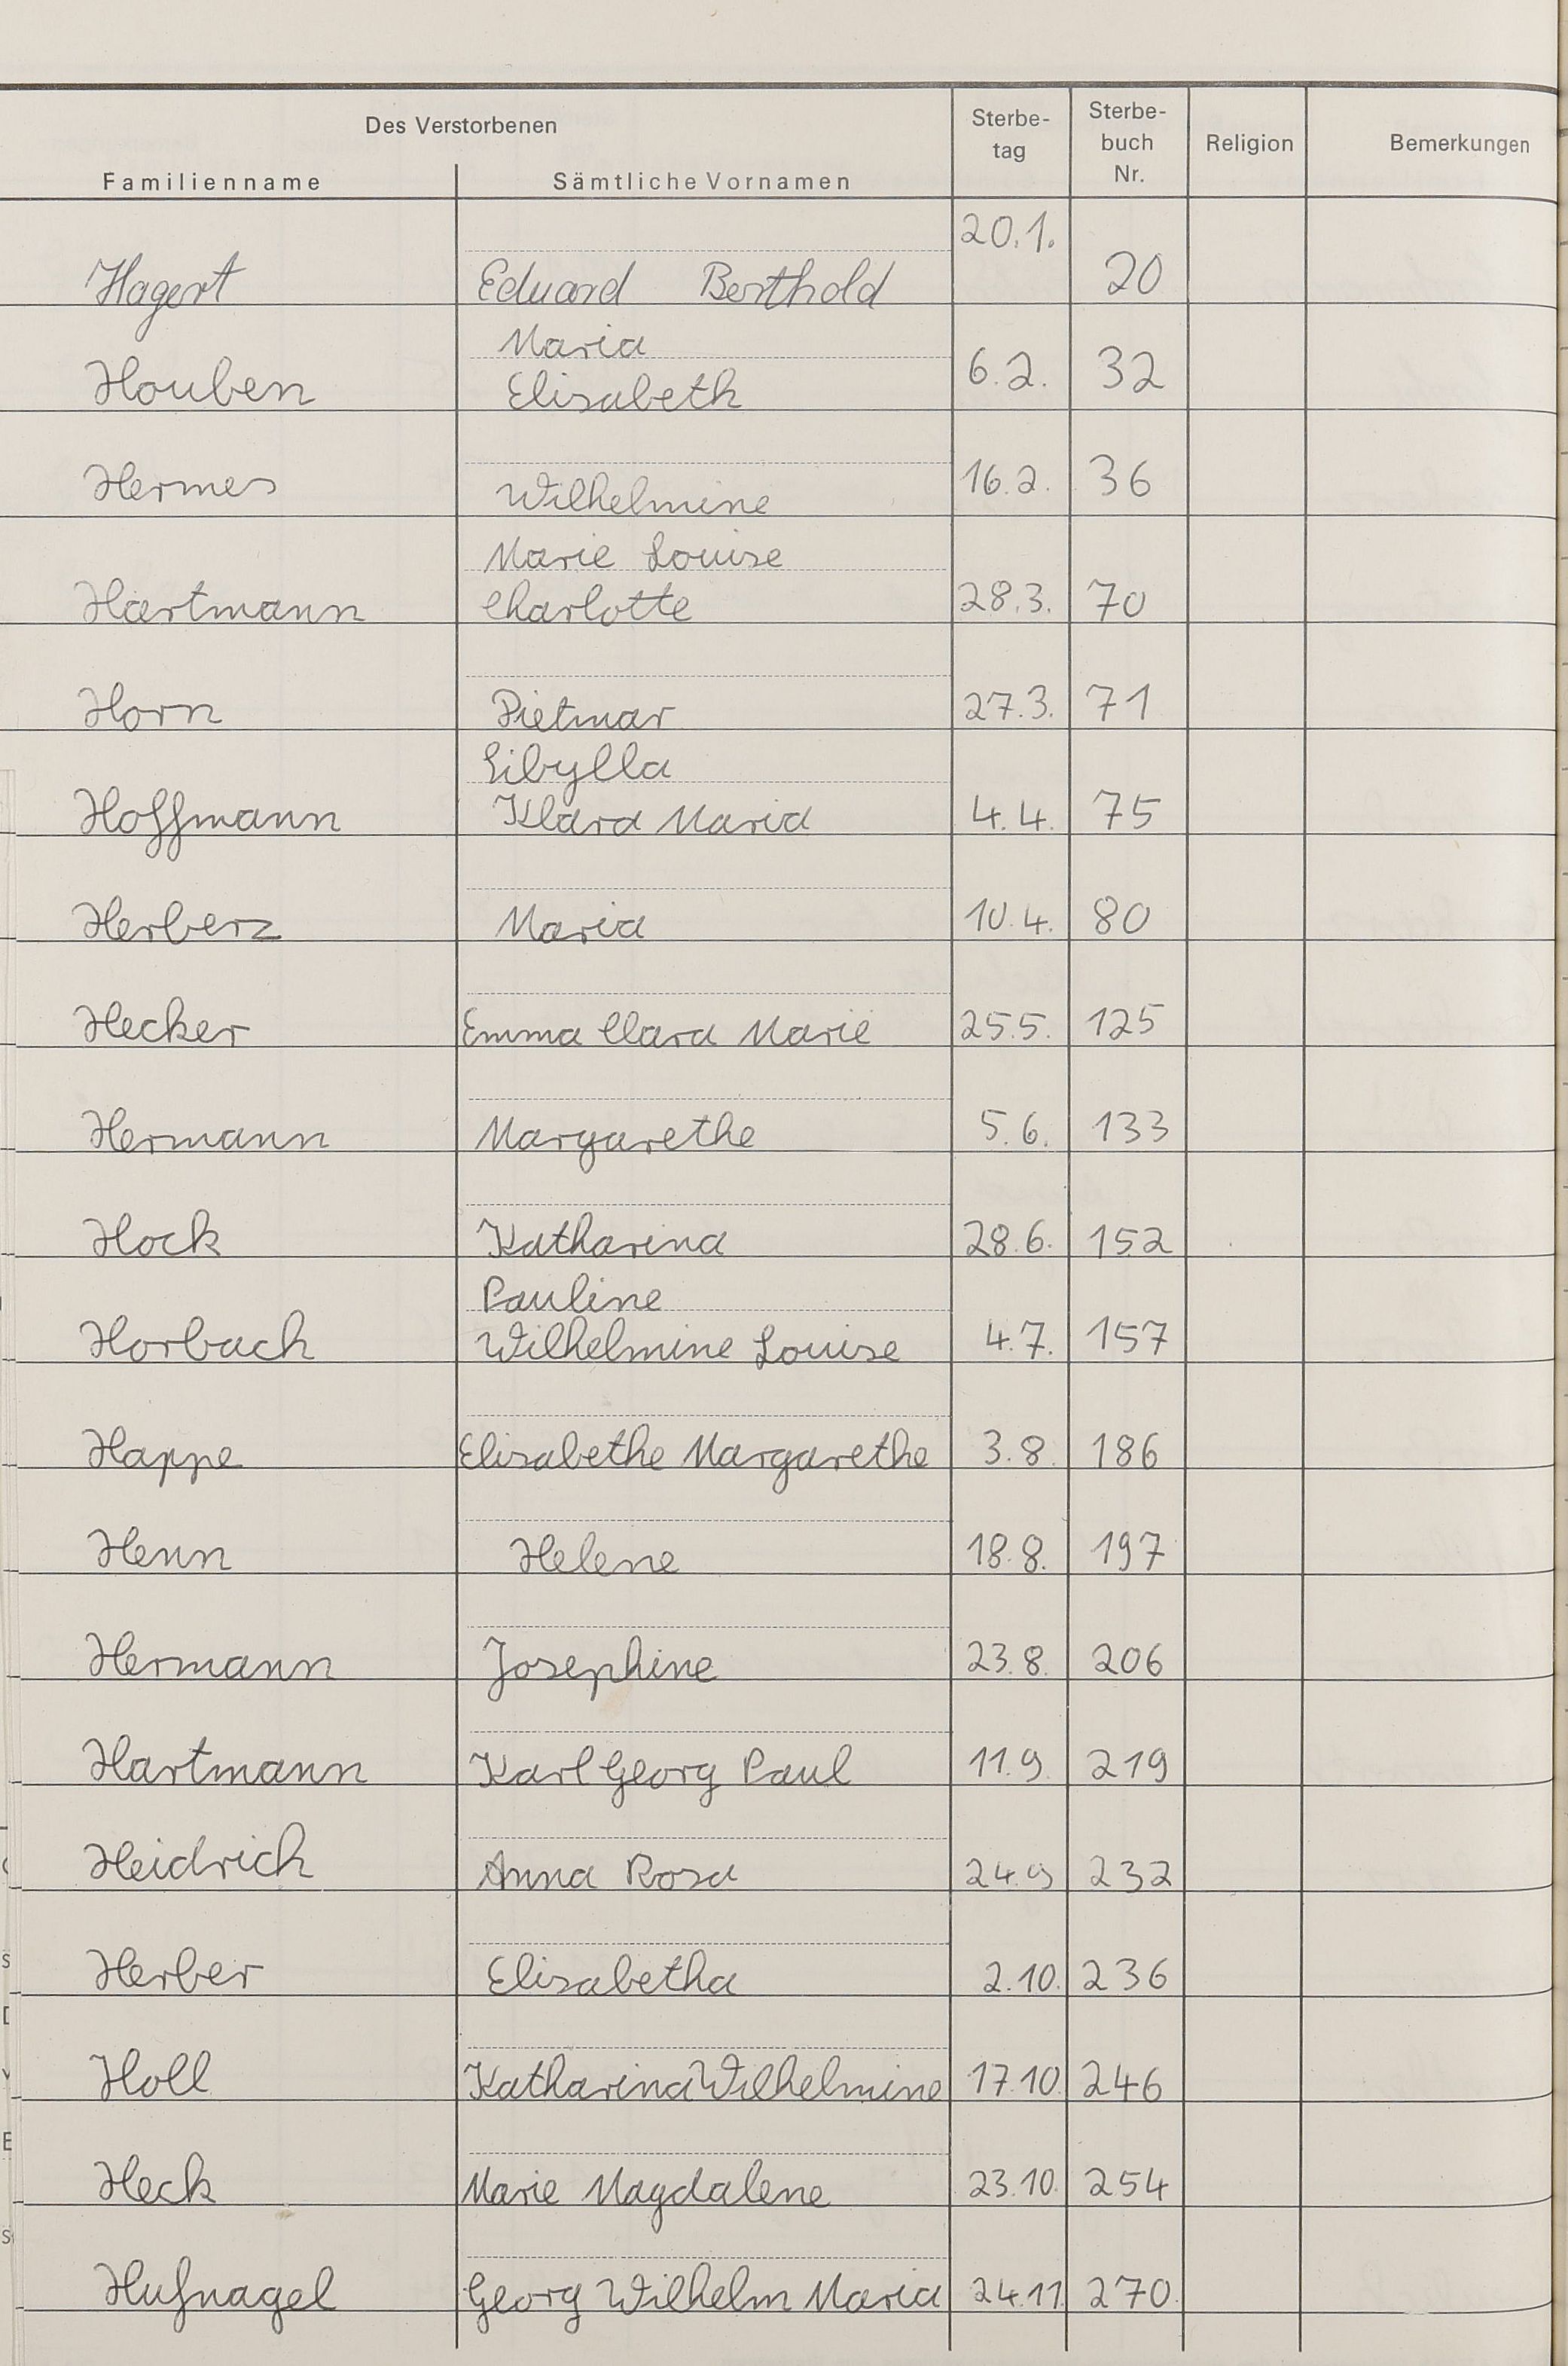 Des Verstorbenen
Familienname Sämtliche Vornamen Sterbe-tag Sterbe-buch Nr. Religion Bemerkungen
20.1.
Hagert Eduard Berthold 20
Maria
Houben Elisabeth 6.2. 32
Hermes Wilhelmine 16.2. 36
Marie Louise
Hartmann Charlotte 28.3. 70
Horn Dietmar 27.3. 71
Sibylla
Hoffmann Klara Maria 4.4. 75
Herberz Maria 10.4. 80
Hecker Emma Clara Marie 25.5. 125
Hermann Margarethe 5.6. 133
Hock Katharina 28.6. 152
Pauline
Horbach Wilhelmine Louise 4.7. 157
Happe Elisabethe Margarethe 3.8. 186
Henn Helene 18.8. 197
Hermann Josephine 23.8. 206
Hartmann Karl Georg Paul 11.9. 219
Heidrich Anna Rosa 24.9 232
Herber Elisabetha 2.10. 236
Holl Katharina Wilhelmine 17.10 246
Heck Marie Magdalene 23.10. 254
Hufnagel Georg Wilhelm Maria 24.11. 270